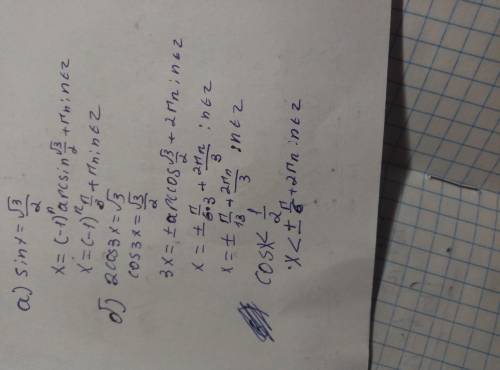 а) sin x = √3/2
x = (-1)ⁿ arcsin √3/2 + πn; n∈z
x = (-1)ⁿ π/3 + πn; n∈z
б) 2cos3x = √3
cos3x = √3/2
3x = ± arccos √3/2 + 2πn; n∈z
x = ± π/6·3 + 2πn/3; n∈z
x = ± π/18 + 2πn/3; n∈z
cosx < 1/2
x < ± π/6 + 2πn; n∈z